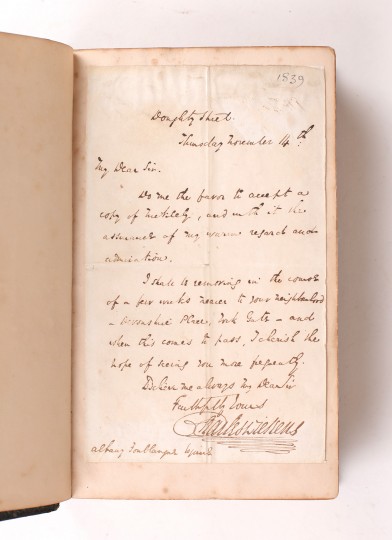 1839
Doughty Street.
Thursday November 14th.
My Dear Sir.
Do me the favor to accept a
copy of Nickleby, and with it the
assurance of my warm regard and
admiration.
I shall be removing in the course
of a few weeks nearer to your neighbourhood
– Devonshire Place, York Gate – and
when this comes to pass, I cherish the
hope of seeing you more frequently.
Believe me always My Dear Sir
Faithfully Yours
Charles Dickens
Albany Fonblanque Esquire